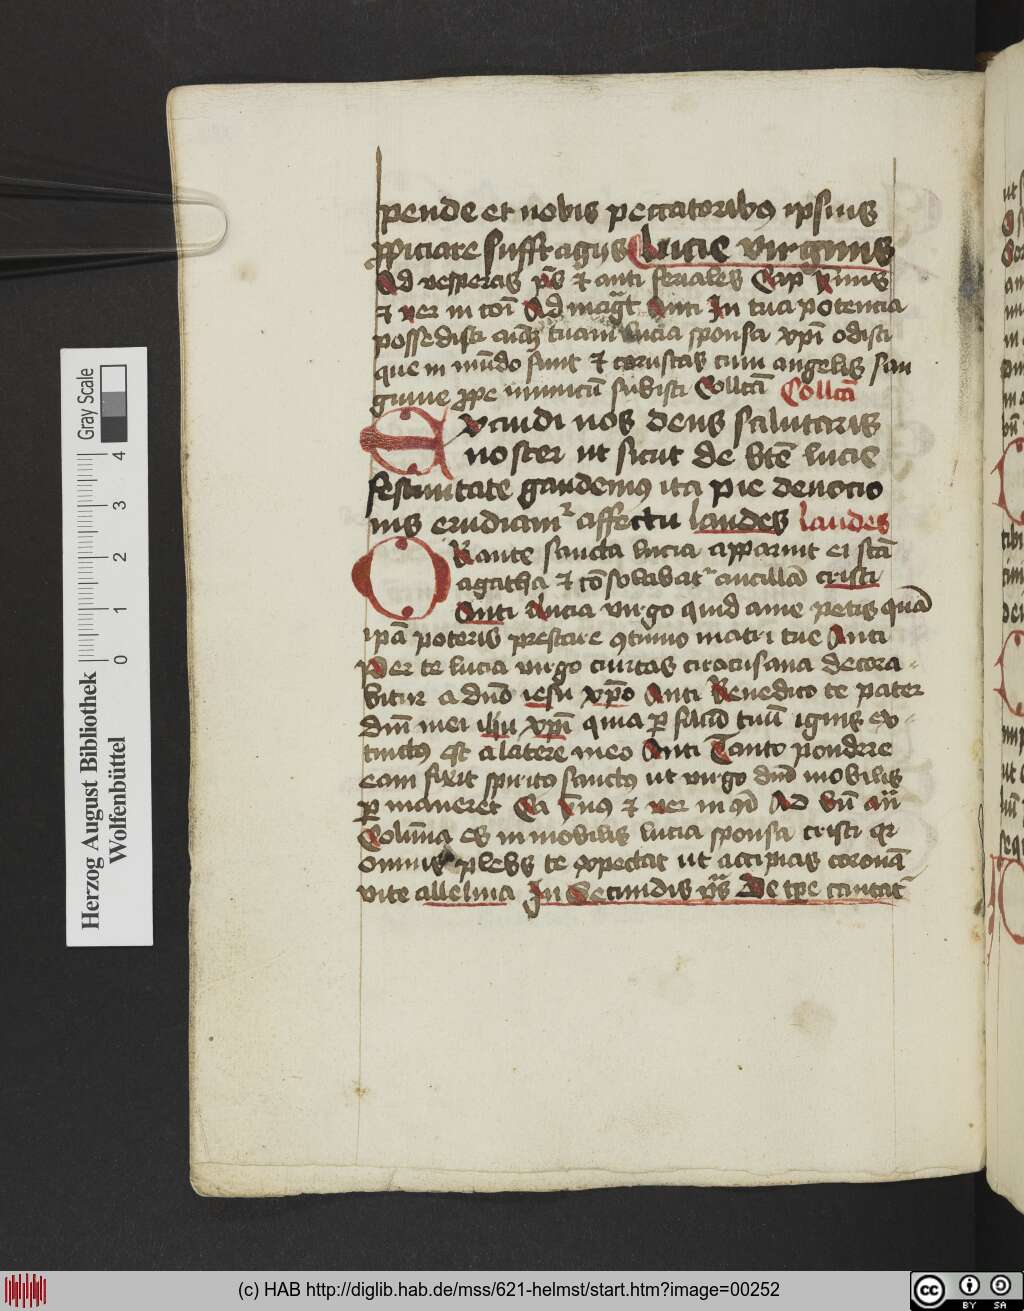 pende et nobis peccatoribꝯ ipsius
ꝓpiciare suffragijs Lucie virginis
Ad vesperas p̄s ⁊ anti feriales Cap̄ vnius
⁊ ver in coī Ad mag̅t Anti In tua potencia
possedisti tuam lucia sponsa xp̄i odisti
que in mūdo sunt ⁊ coruscas cum angelis san
guine ꝓpe inimicū Collcā Collcā
Exaudi nos deus salutaris
noster ut sicut de btē lucie
festiuitate gaudemꝯ ita pie deuocio
nis erudiamr affectu laudes laudes
ORante sancta lucia apparuit ei sctā
agatha ⁊ cōsolabatr ancillā cristi
Anti Lucia virgo quid a me petis quā
ipā poteris prestare ꝯtinuo matri tue Anti
Per te lucia virgo ciuitas ciracusana decora
bitur a dn̄o iesu xp̄o Anti Benedico te pater
dn̄i mei ihu xp̄i quia ꝑ filiū tuū ignis ex
tinctꝯ est a latere meo Anti Tanto pondere
eam fixit spirito sanctꝯ ut virgo dn̄d mobilis
ꝑmaneret Ca v̄nꝯ ⁊ ver Ad bn̄ an̄
Colūna es in mobilis lucia sponsa cristi qr
omnis plebs te expectat ut accipias coronā
vite alleluia In secundis vr̄s De tpe cantat
Gray Scale
0 1 2 3 4
Herzog August Bibliothek
Wolfenbüttel
(c) HAB http://diglib.hab.de/mss/621-helmst/start.htm?image=00252
cc BY SA